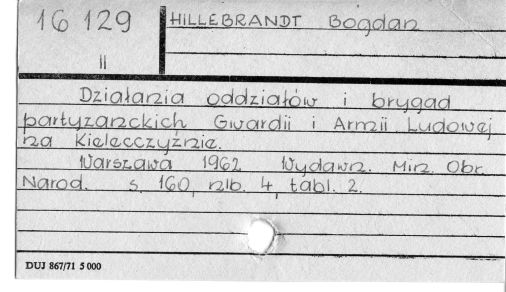 16 129
II
HILLEBRANDT Bogdan
Działania oddziałów i brygad
partyzanckich Gwardii i Armii Ludowej
na Kielecczyźnie.
Warszawa 1962 Wydawn. Min. Obr.
Narod. s. 160, nlb. 4, tabl. 2.
DUJ 867/71 5 000